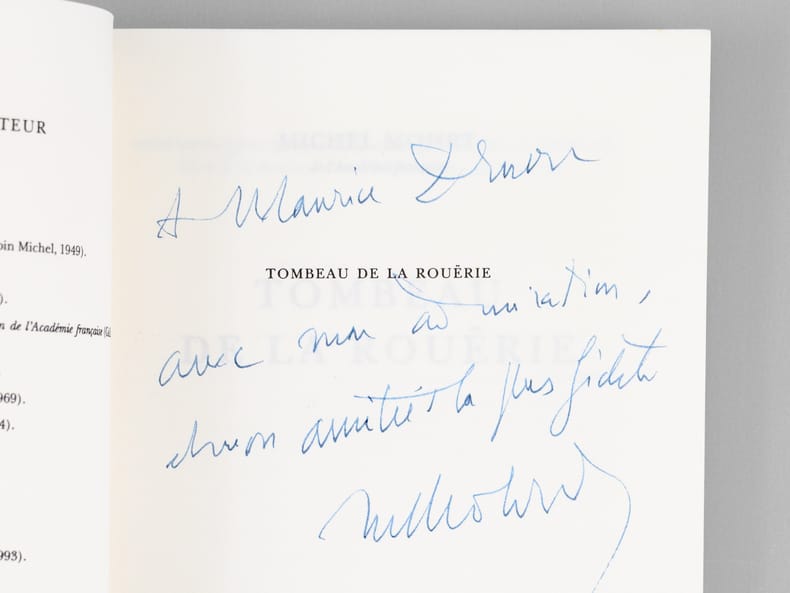 TEUR
oin Michel, 1949).
).
n de l'Académie française
969).
4).
993).
A Maurice Druon
TOMBEAU DE LA ROUËRIE
avec mon admiration,
et mon amitié la plus fidèle
MMohrt
MICHEL MOHRT
TOMBEAU
DE LA ROUËRIE